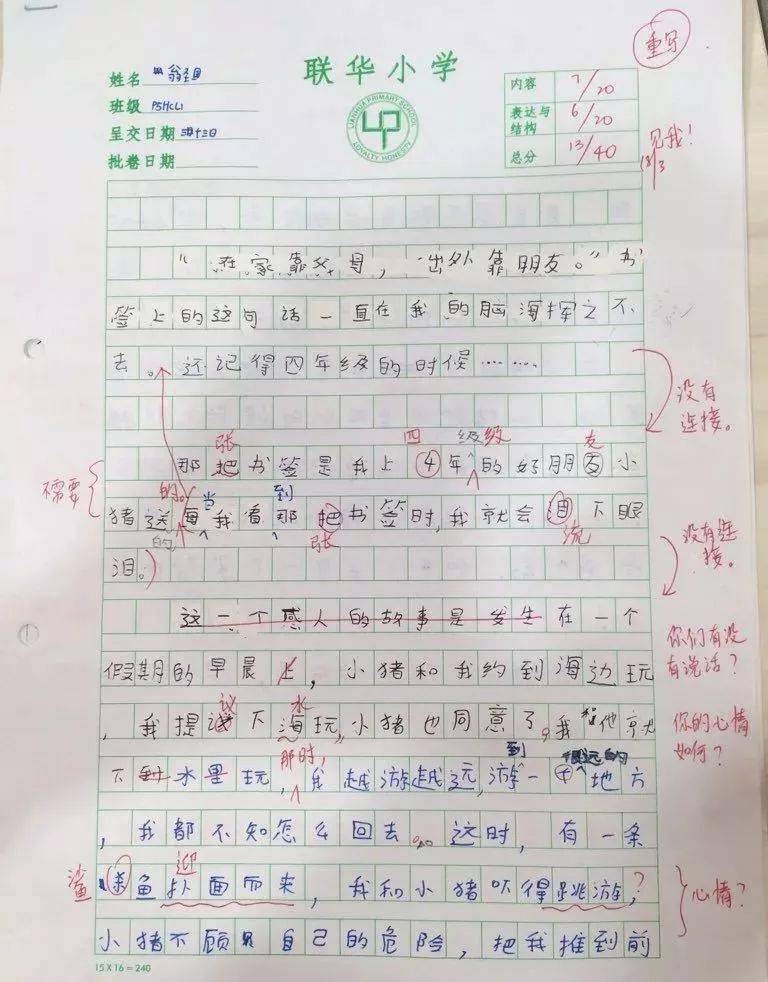 重写
联华小学
姓名
班级 P5HCL1
呈交日期 三月十三日
批卷日期
LIANHUA PRIMARY SCHOOL
LOYALTY HONESTY
内容 7/20
表达与结构 6/20
总分 13/40
见我！
18/3
“在家靠父母，出外靠朋友。”书
签上的这句话一直在我的脑海挥之不
去。还记得四年级的时候……
没有连接。
张 四 级级 友
那把书签是我上④年的好朋友小
不需要
的。当 到
猪送每我看那把书签时，我就会泪下眼
的 张 流
没有连接。
泪。
这一个感人的故事是发生在一个
你们有没有说话？
假期的早晨上，小猪和我约到海边玩
议 水
，我提议下海玩，小猪也同意了。我和他就
你的心情如何？
那时， 到 很远的
下到水里玩，我越游越远，游一个地方
，我都不知怎么回去。这时，有一条
鲨 迎
杀鱼扑面而来，我和小猪吓得跳游，？
心情？
小猪不顾自己的危险，把我推到前
15 X 16 = 240